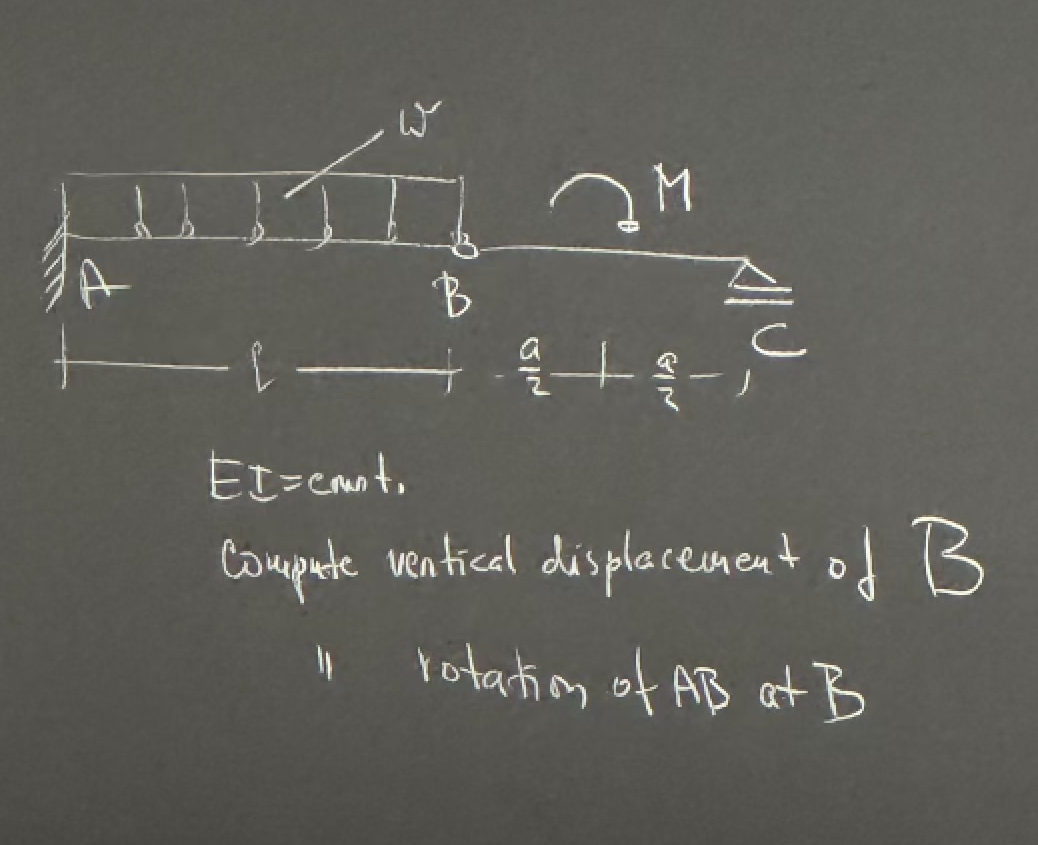 w
M
A
B
C
l
a/2
a/2
EI=const.
Compute vertical displacement of B
" rotation of AB at B